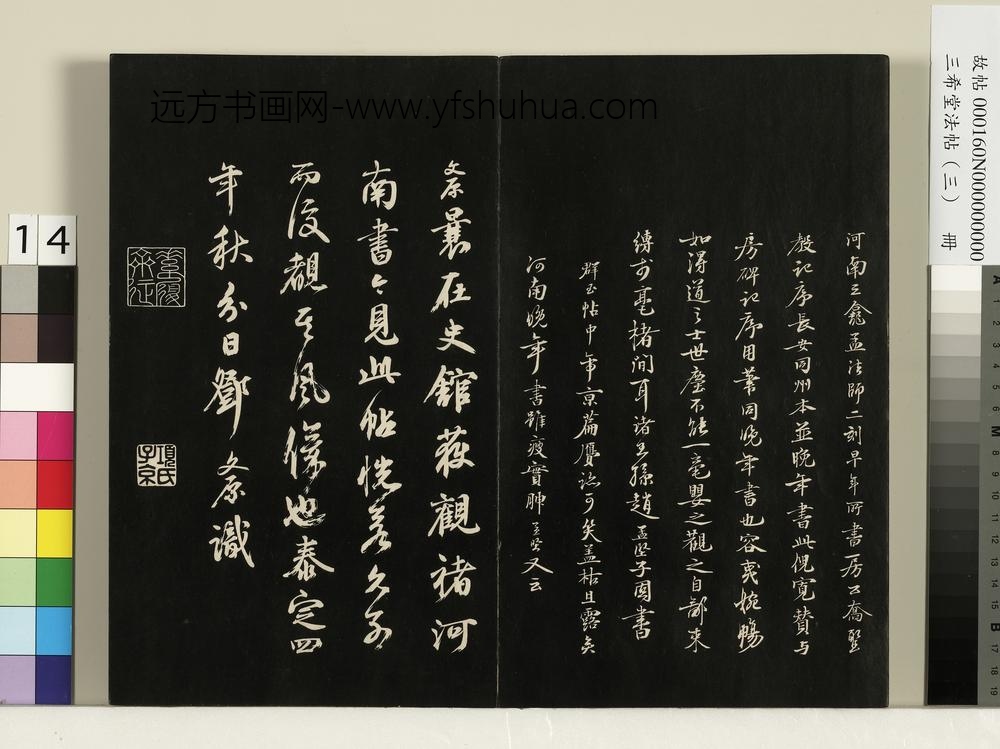 故帖 000160N000000000
三希堂法帖（三） 冊
远方书画网-www.yfshuhua.com
河南三龕孟法師二刻早年所書一房公喬聖
教記序長安同州本並晚年書此倪寬贊与
房碑記序用筆同晚年書也容夷婉暢
如得道之士世塵不能一毫嬰之觀之自鄙束
縛於毫楮間耳諸王孫趙孟堅子固書
群玉帖中帝京篇贗跡可矣盖枯且露矣
河南晚年書雖瘦實腴孟堅又云
文原曩在史館獲觀禇河
南書今見此帖恍若久別
而復覩其風儀也泰定四
年秋分日鄧文原識
項氏子京
14